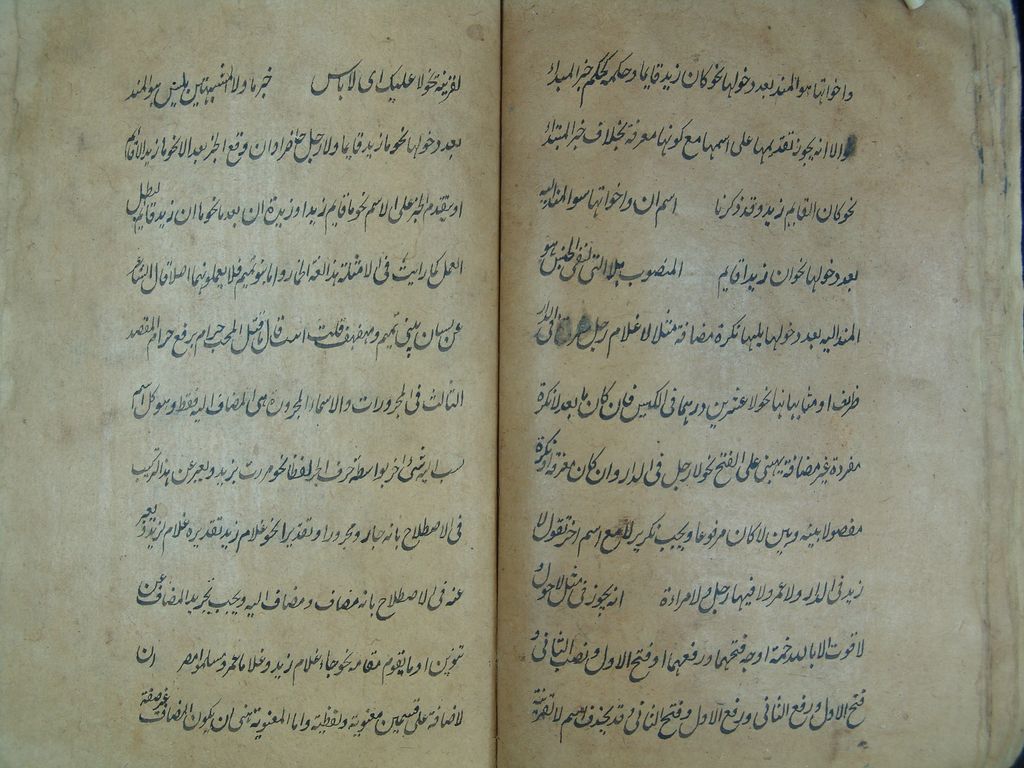 واخواتها هو المسند بعد دخولها نحو كان زيد قايما وحكمه كحكم خبر المبتدأ
والا انه يجوز تقديمها على اسمها مع كونها معرفة بخلاف خبر المبتدأ
نحو كان القايم زيد وقد ذكرنا اسم ان واخواتها هو المسند اليه
بعد دخولها نحو ان زيدا قايم المنصوب بلا التى لنفى الجنس هو
المسند اليه بعد دخولها يليها نكرة مضافة مثل لا غلام رجل فى الدار
ظريف او مشابها لها نحو لا عشرين درهما فى الكيس فان كان بعد لا نكرة
مفردة غير مضافة يبنى على الفتح نحو لا رجل فى الدار وان كان معرفة او نكرة
مفصولا بينه وبين لا كان مرفوعا ويجب تكرير لا مع اسم اخر تقول لا
زيد فى الدار ولا عمرو ولا فيها رجل ولا امراءة انه يجوز فى مثل لا حول و
لا قوة الا بالله خمسة اوجه فتحهما ورفعهما او فتح الاول ونصب الثانى و
فتح الاول ورفع الثانى ورفع الاول وفتح الثانى وقد يحذف اسم لا لقرينة
لقرينة نحو لا عليك اى لا باس خبر ما ولا المشبهتين بليس هو المسند
بعد دخولها نحو ما زيد قايما ولا رجل حاضرا وان وقع الخبر بعد الا نحو ما زيد الا قايم
او يتقدم الخبر على الاسم نحو ما قايم زيد او زيدة ان بعد ما نحو ما ان زيد قايم لبطل
العمل كما رايت فى الامثلة هذا لغة الحجاز واما بنو تميم فلا يعملونهما اصلا قال الشاعر
عن لسان بنى تميم ومهفهف قلت انتسب قال ما قتل المحب حرام برفع حرام المقصد
الثالث فى المجرورات والاسماء المجرورة هى المضاف اليه فقط وهو كل اسم
نسب اليه شئ اخر بواسطة حرف الجر لفظا نحو مررت بزيد ويعبر عن هذا التركيب
فى الاصطلاح بانه جار ومجرور او تقديرا نحو غلام زيد تقديره غلام لزيد ويعبر
عنه فى الاصطلاح بانه مضاف ومضاف اليه ويجب تجريد المضاف عن
تنوين او ما يقوم مقامه نحو جاء غلام زيد وغلاما عمرو ومسلمو مصر ان
الاضافة على قسمين معنوية ولفظية واما المعنوية هى ان يكون المضاف غير صفة